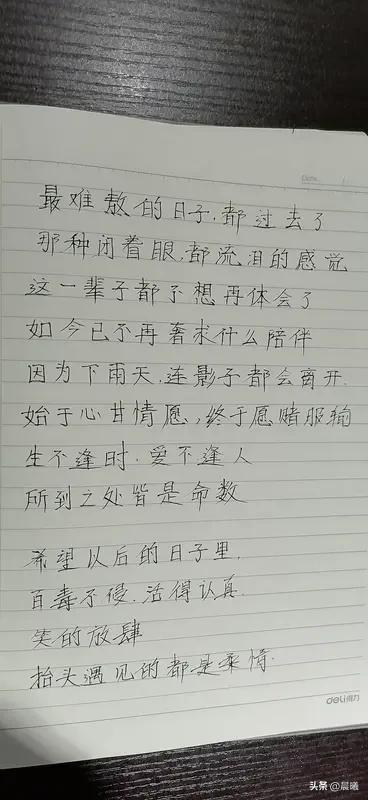 Date
最难熬的日子,都过去了
那种闭着眼,都流泪的感觉
这一辈子都不想再体会了
如今已不再奢求什么陪伴
因为下雨天,连影子都会离开.
始于心甘情愿,终于愿赌服输
生不逢时,爱不逢人
所到之处皆是命数
希望以后的日子里,
百毒不侵,活得认真.
笑的放肆
抬头遇见的都是柔情.
deli得力
头条@晨曦